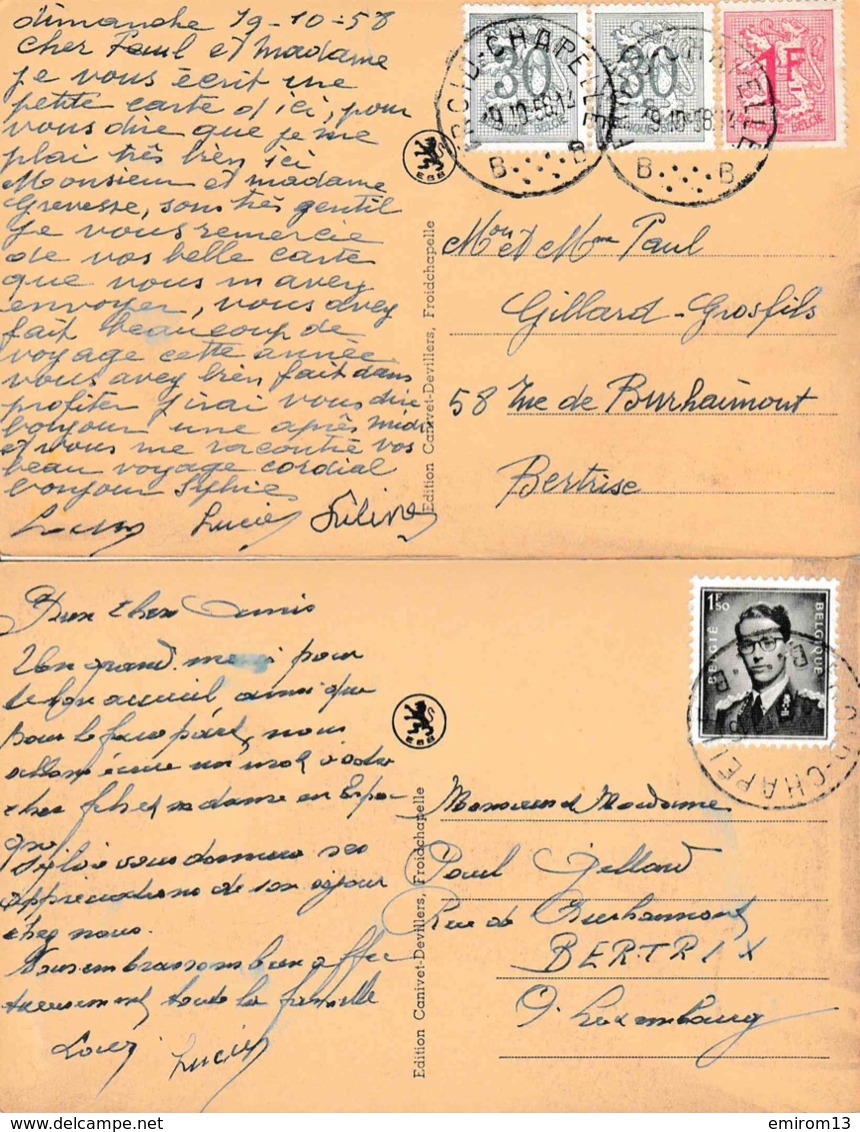 dimanche 19-10-58
cher Paul et Madame
je vous écrit une
petite carte d'ici, pour
vous dire que je me
plai très bièn ici
Monsieur et madame
Grevesse, sont très gentil
Je vous remercie
de vos belle carte
que vous m'avez
envoyer, vous avez
fait beaucoup de
voyage cette année
vous avez bièn fait dans
profiter j'irai vous dire
bonjour une après midi
et vous me racontré vos
beau voyage cordial
bonjour Sylvie
Lucien
30
30
1F
BELGIQUE BELGIË
FROID-CHAPELLE
19-10-58
B B
FROID-CHAPELLE
19-10-58
B B
EBB
Edition Canivet-Devillers, Froidchapelle
Mon et Mme Paul
Gillard-Grosfils
58 rue de Burhaimont
Bertrise
Bien chers amis
Un grand merci pour
le bon accueil, ainsi que
pour le faire part, nous
allons écrire un mot à votre
cher fils et madame en Espa-
gne
Sylvie vous donnera ses
appréciations de son séjour
chez nous.
Nous embrassons bien affec
tueusement toute la famille
Lucien
EBB
Edition Canivet-Devillers, Froidchapelle
1F50
BELGIË
BELGIQUE
FROID-CHAPELLE
Monsieur et Madame
Paul Gillard
Rue de Burhaimont
BERTRIX
P. Luxembourg
www.delcampe.net
emirom13